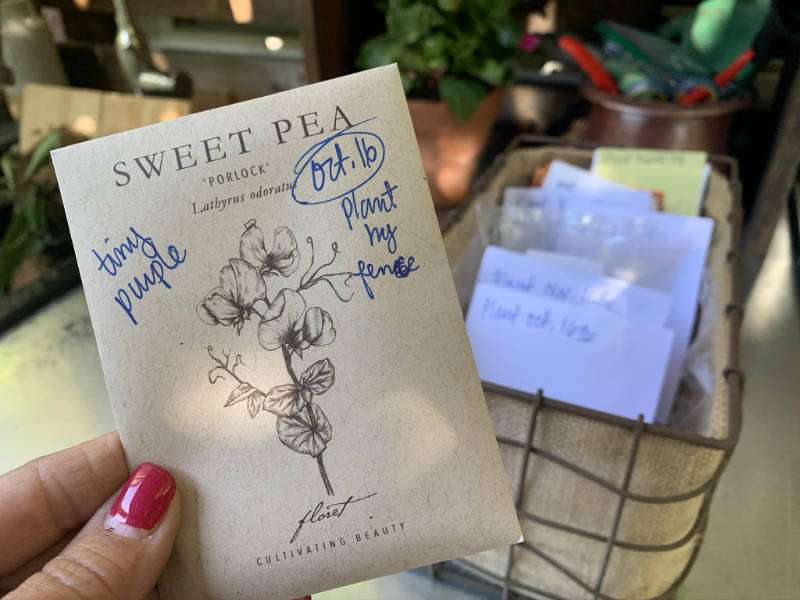 SWEET PEA
'PORLOCK'
Lathyrus odoratus
Oct. 16
plant
by
fence
tiny
purple
floret
CULTIVATING BEAUTY
Plant Nov.
Plant Oct. 16th